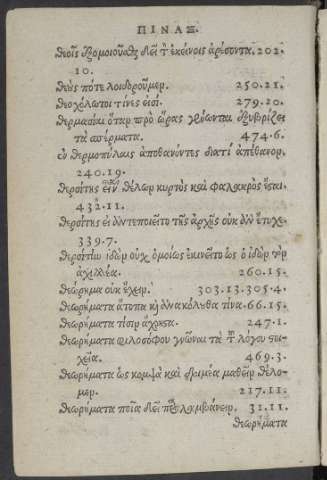 ΠΙΝΑΞ.
θεοῖς ὁμοιοῦσθαι δεῖ τὸν ἐκείνοις ἀρέσοντα. 202.
10.
θεοὺς πότε λοιδοροῦμεν. 250.21.
θεοχόλωτοι τίνες εἰσί. 279.20.
θερμασίαι ὅταν πρὸ ὥρας γένωνται ἐξυβρίζει
τὰ σπέρματα. 474.6.
ἐν θερμοπύλαις ἀποθανόντες διατί ἀπέθανον.
240.19.
θερσίτης εἶναι θέλων κυρτὸς καὶ φαλακρὸς ἔσται
432.11.
θερσίτης εἰ ἀντεποιεῖτο τῆς ἀρχῆς οὐκ ἂν ἔτυχε.
339.7.
θερσίτην ἰδὼν οὐχ ὁμοίως ἐκινεῖτο ὡς ὁ ἰδὼν τὸν
ἀχιλλέα. 260.15.
θεώρημα οὐκ ἔχειν. 303.13.305.4.
θεωρήματα ἄτοπα κἀνακόλουθα τίνα. 66.15.
θεωρήματα τίσιν ἄχρηστα. 247.1.
θεωρήματα φιλοσόφου γνῶναι τὰ τοῦ λόγου στοι-
χεῖα. 469.3.
θεωρήματα ὡς κομψὰ καὶ μαθεῖν θέλο-
μεν. 217.11.
θεωρήματα ποῖα δεῖ προλαμβάνειν. 31.11.
θεωρήματα